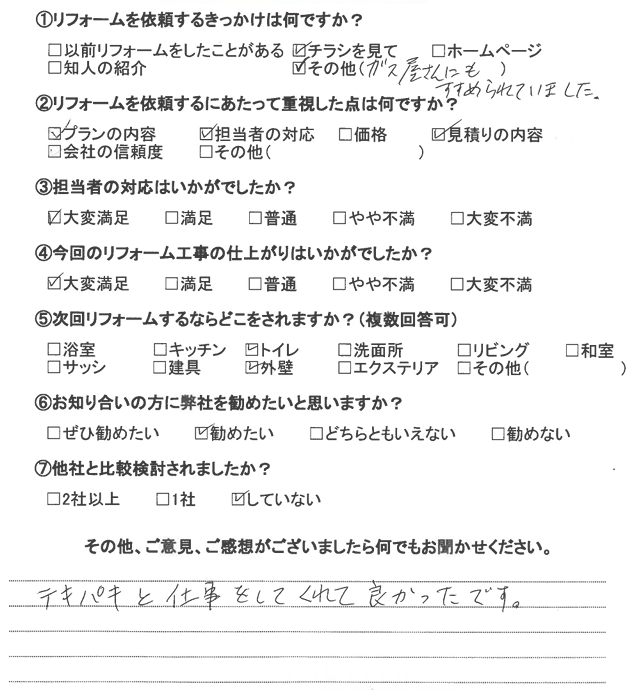 ①リフォームを依頼するきっかけは何ですか？
□以前リフォームをしたことがある ☑チラシを見て □ホームページ
□知人の紹介 ☑その他(ガス屋さんにも )
すすめられていました。
②リフォームを依頼するにあたって重視した点は何ですか？
☑プランの内容 ☑担当者の対応 □価格 ☑見積りの内容
□会社の信頼度 □その他( )
③担当者の対応はいかがでしたか？
☑大変満足 □満足 □普通 □やや不満 □大変不満
④今回のリフォーム工事の仕上がりはいかがでしたか？
☑大変満足 □満足 □普通 □やや不満 □大変不満
⑤次回リフォームするならどこをされますか？（複数回答可）
□浴室 □キッチン ☑トイレ □洗面所 □リビング □和室
□サッシ □建具 ☑外壁 □エクステリア □その他( )
⑥お知り合いの方に弊社を勧めたいと思いますか？
□ぜひ勧めたい ☑勧めたい □どちらともいえない □勧めない
⑦他社と比較検討されましたか？
□2社以上 □1社 ☑していない
その他、ご意見、ご感想がございましたら何でもお聞かせください。
テキパキと仕事をしてくれて良かったです。